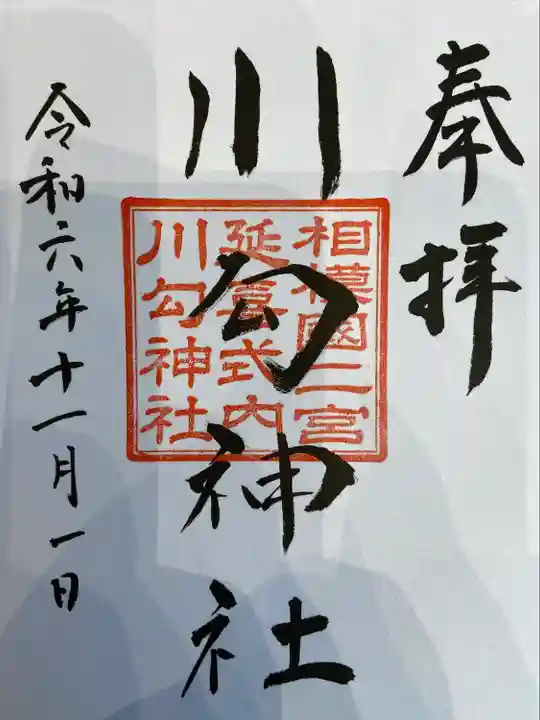 奉拝
川勾神社
相模國二宮
延喜式内
川勾神社
令和六年十一月一日